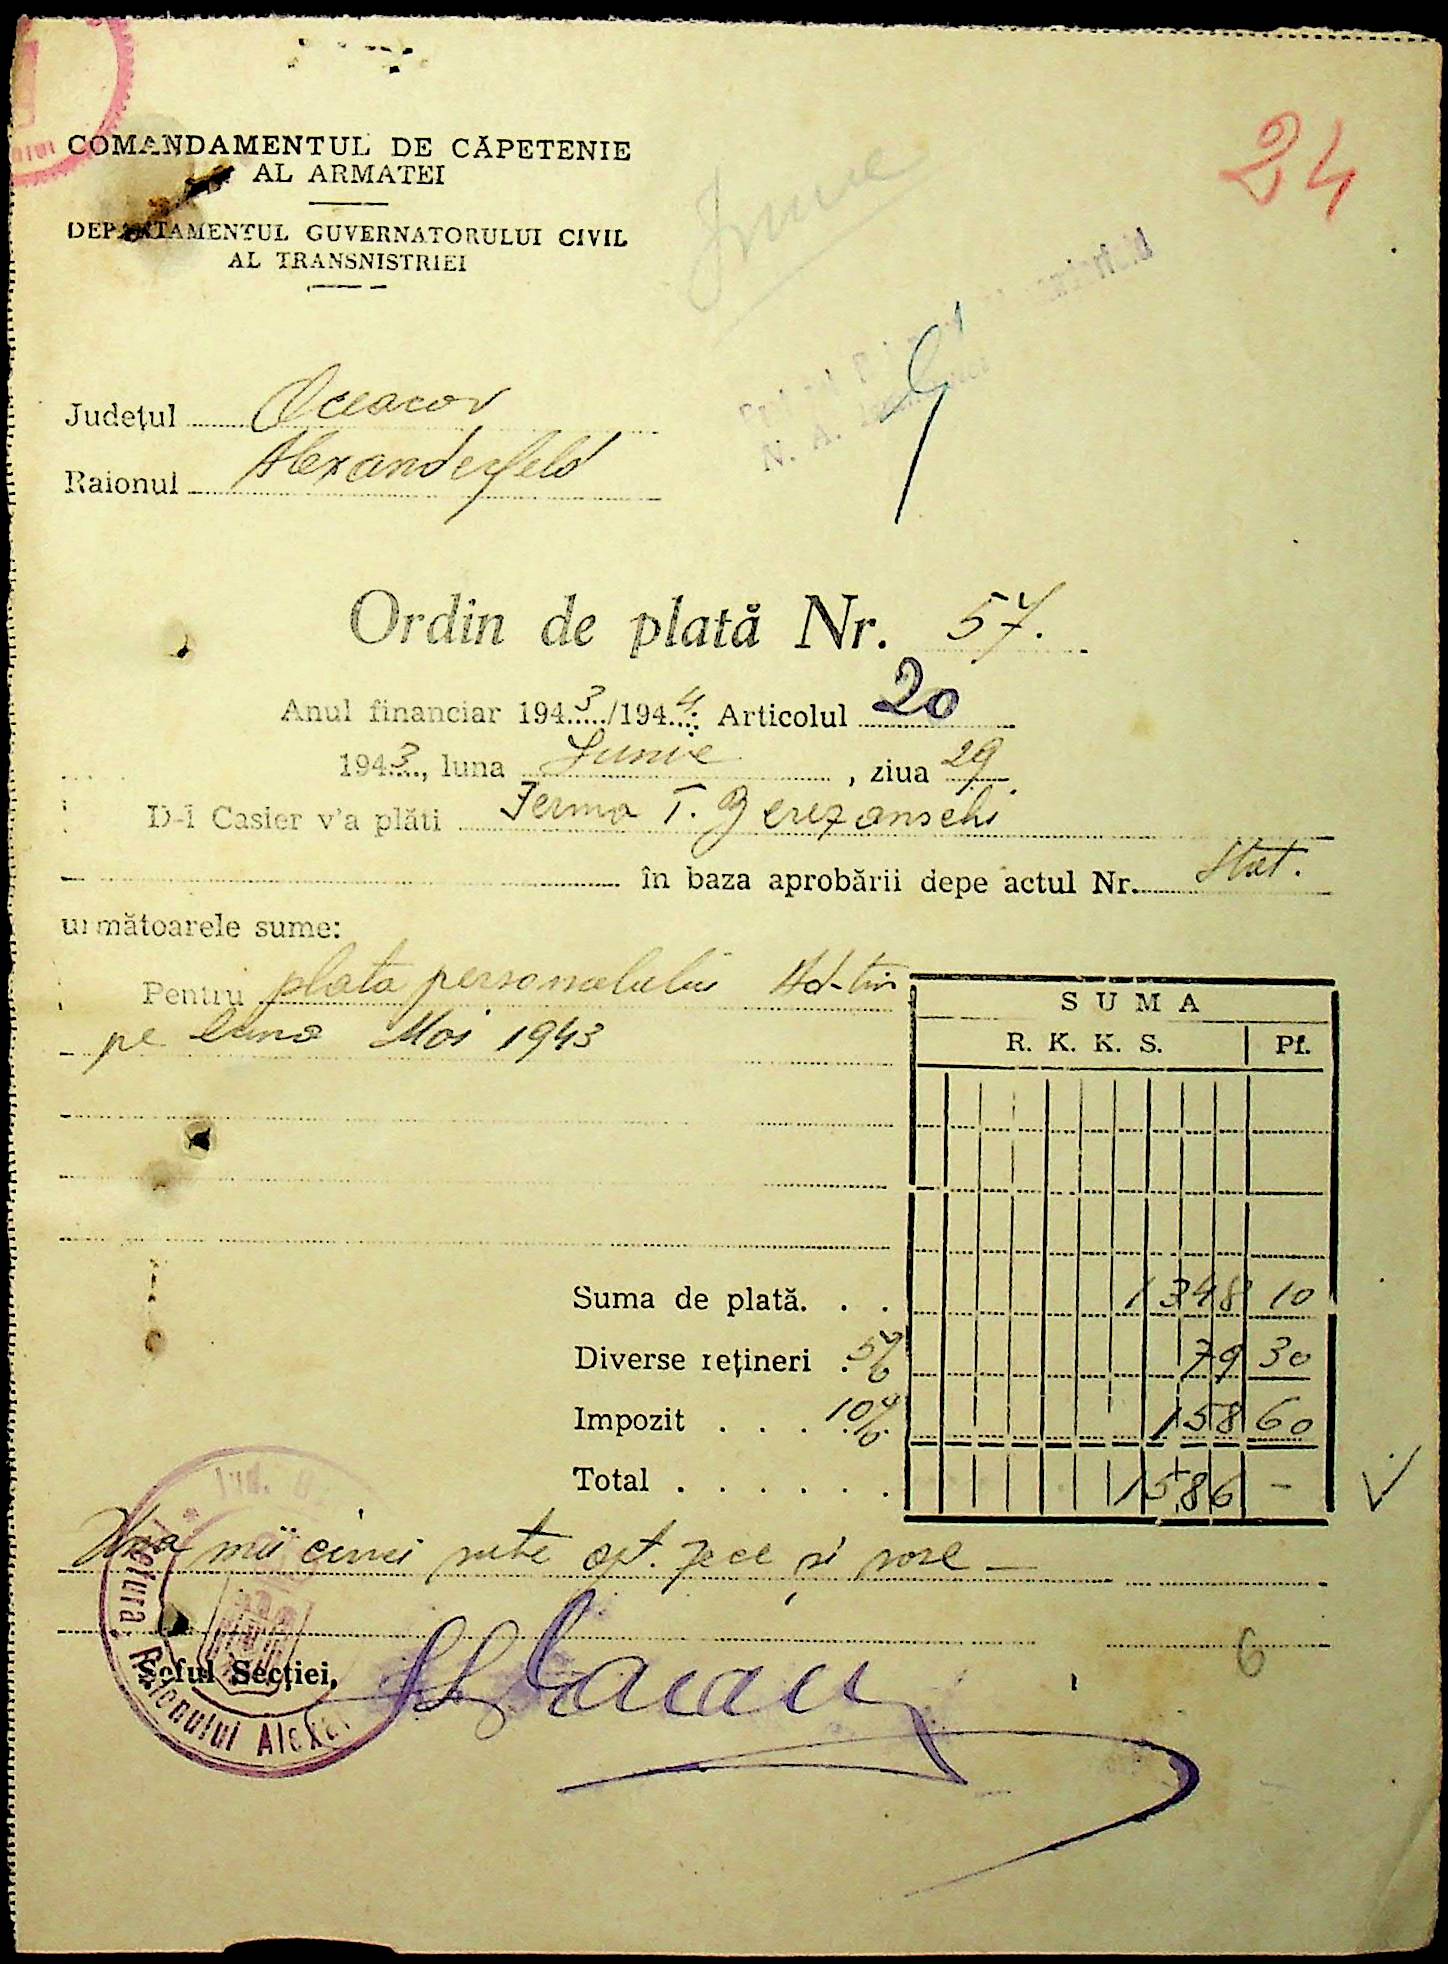 24
COMANDAMENTUL DE CĂPETENIE
AL ARMATEI
DEPARTAMENTUL GUVERNATORULUI CIVIL
AL TRANSNISTRIEI
Junie
N. A.
Județul Oceacov
Raionul Alexanderfeld
Ordin de plată Nr. 57.
Anul financiar 1943/1944 Articolul 20
1943, luna Junie, ziua 29
D-l Casier v'a plăti Ferma T. Berezanschi
în baza aprobării depe actul Nr. Stat.
următoarele sume:
Pentru plata personalului Ad-tiv
pe luna Mai 1943
SUMA
R. K. K. S. Pf.
Suma de plată. . . 1348 10
Diverse rețineri . 5% 79 30
Impozit . . . 10% 158 60
Total . . . . . . 1586 –
Una mii cinci sute opt zece și șase –
6
Șeful Secției,
Jud.
Pretura Raionului Alexa